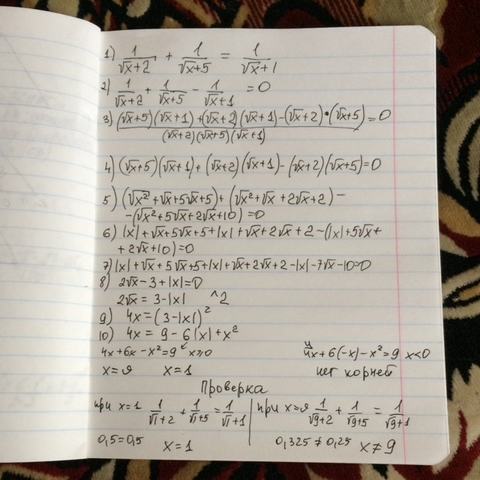 1) 1/(√x+2) + 1/(√x+5) = 1/(√x+1)
2) 1/(√x+2) + 1/(√x+5) - 1/(√x+1) = 0
3) ((√x+5)(√x+1)+(√x+2)(√x+1)-(√x+2)•(√x+5))/((√x+2)(√x+5)(√x+1)) = 0
4) (√x+5)(√x+1)+(√x+2)(√x+1)-(√x+2)(√x+5)=0
5) (√x²+√x+5√x+5)+(√x²+√x+2√x+2)-
-(√x²+5√x+2√x+10)=0
6) |x|+√x+5√x+5+|x|+√x+2√x+2-(|x|+5√x+
+2√x+10)=0
7) |x|+√x+5√x+5+|x|+√x+2√x+2-|x|-7√x-10=0
8) 2√x-3+|x|=0
2√x=3-|x| ^2
9) 4x=(3-|x|)²
10) 4x=9-6|x|+x²
4x+6x-x²=9 x≥0 4x+6(-x)-x²=9 x<0
x=9 x=1 нет корней
Проверка
при x=1 1/(√1+2)+1/(√1+5)=1/(√1+1) при x=9 1/(√9+2)+1/(√9+5)=1/(√9+1)
0,5=0,5 x=1 0,325≠0,25 x≠9